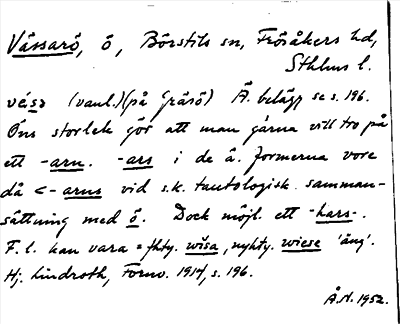 Vässarö, ö, Börstils sn, Frösåkers hd,
Sthlms l.
vésə (vanl.) (på Gräsö) Ä. belägg se s. 196.
Öns storlek gör att man gärna vill tro på
ett -arn. -ars i de ä. formerna vore
då <- arns vid s.k. tautologisk. samman-
sättning med ö. Dock möjl. ett -hars-.
F. l. kan vara = fhty. wĭsa, nyhty. wiese 'äng'.
Hj. Lindroth, Fornv. 1914, s. 196.
Å.N. 1952.